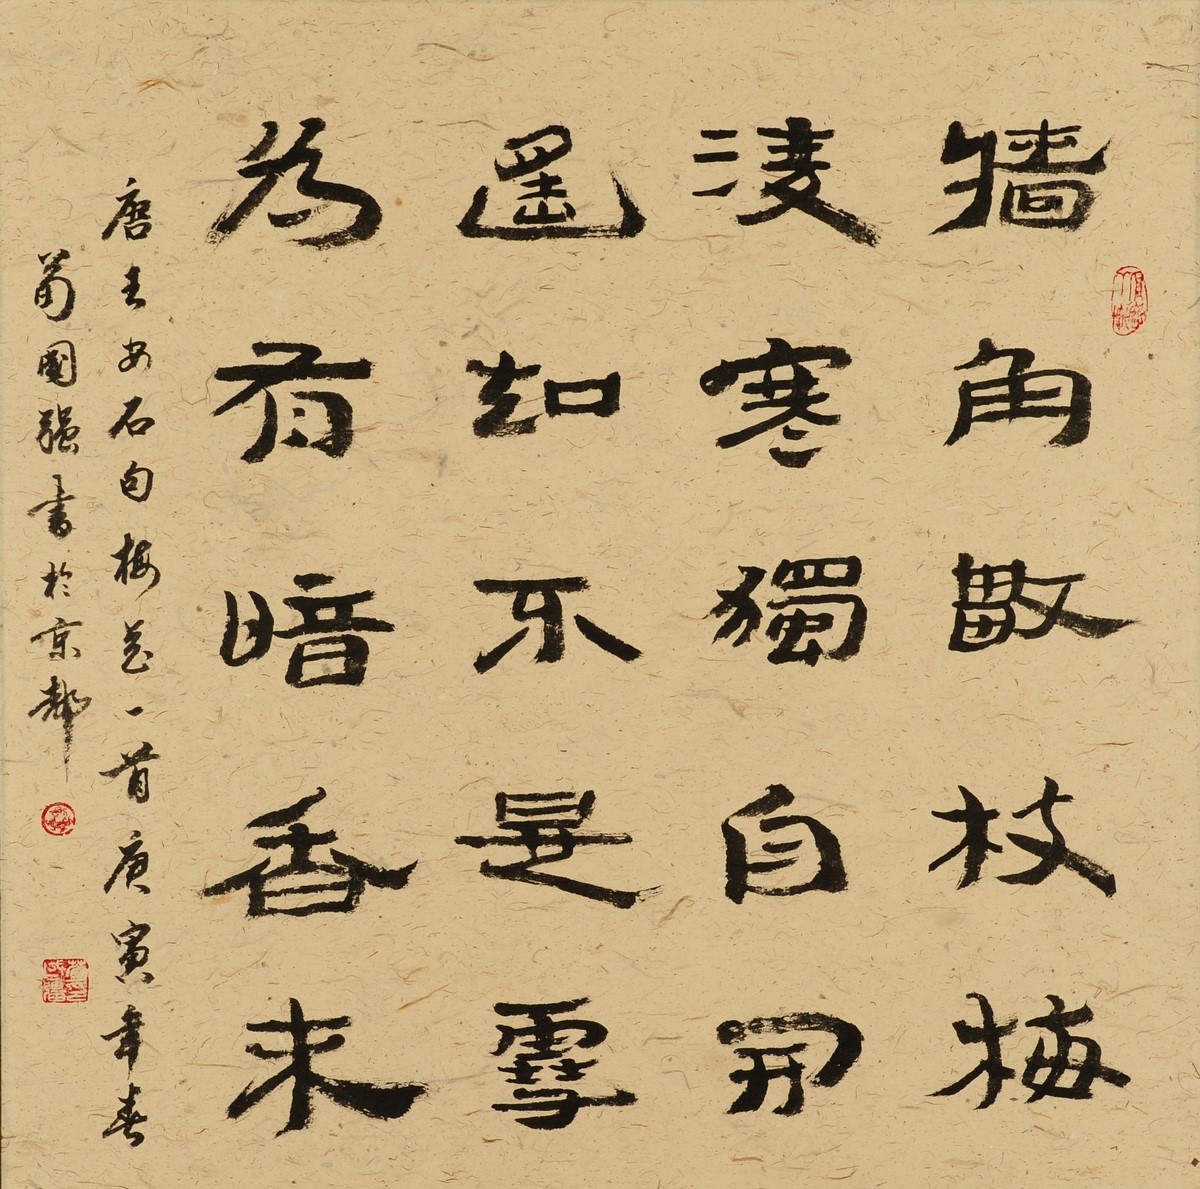 牆角數枝梅
凌寒獨自開
遥知不是雪
为有暗香來
唐王安石句梅花一首庚寅年春
葡國强書於京都